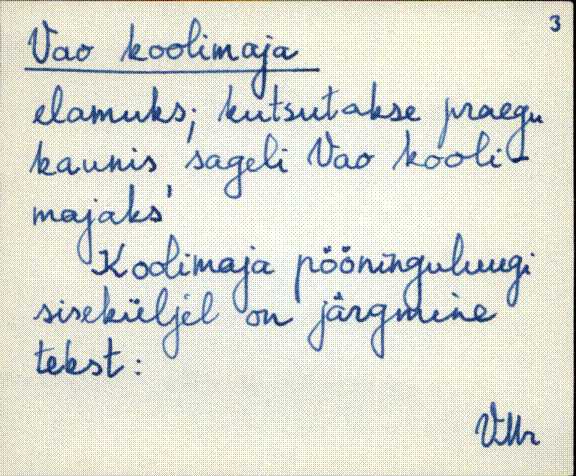 3
Vao koolimaja
elamuks; kutsutakse praegu
kaunis sageli Vao kooli-
majaks'
Koolimaja pööninguluugi
siseküljel on järgmine
tekst: